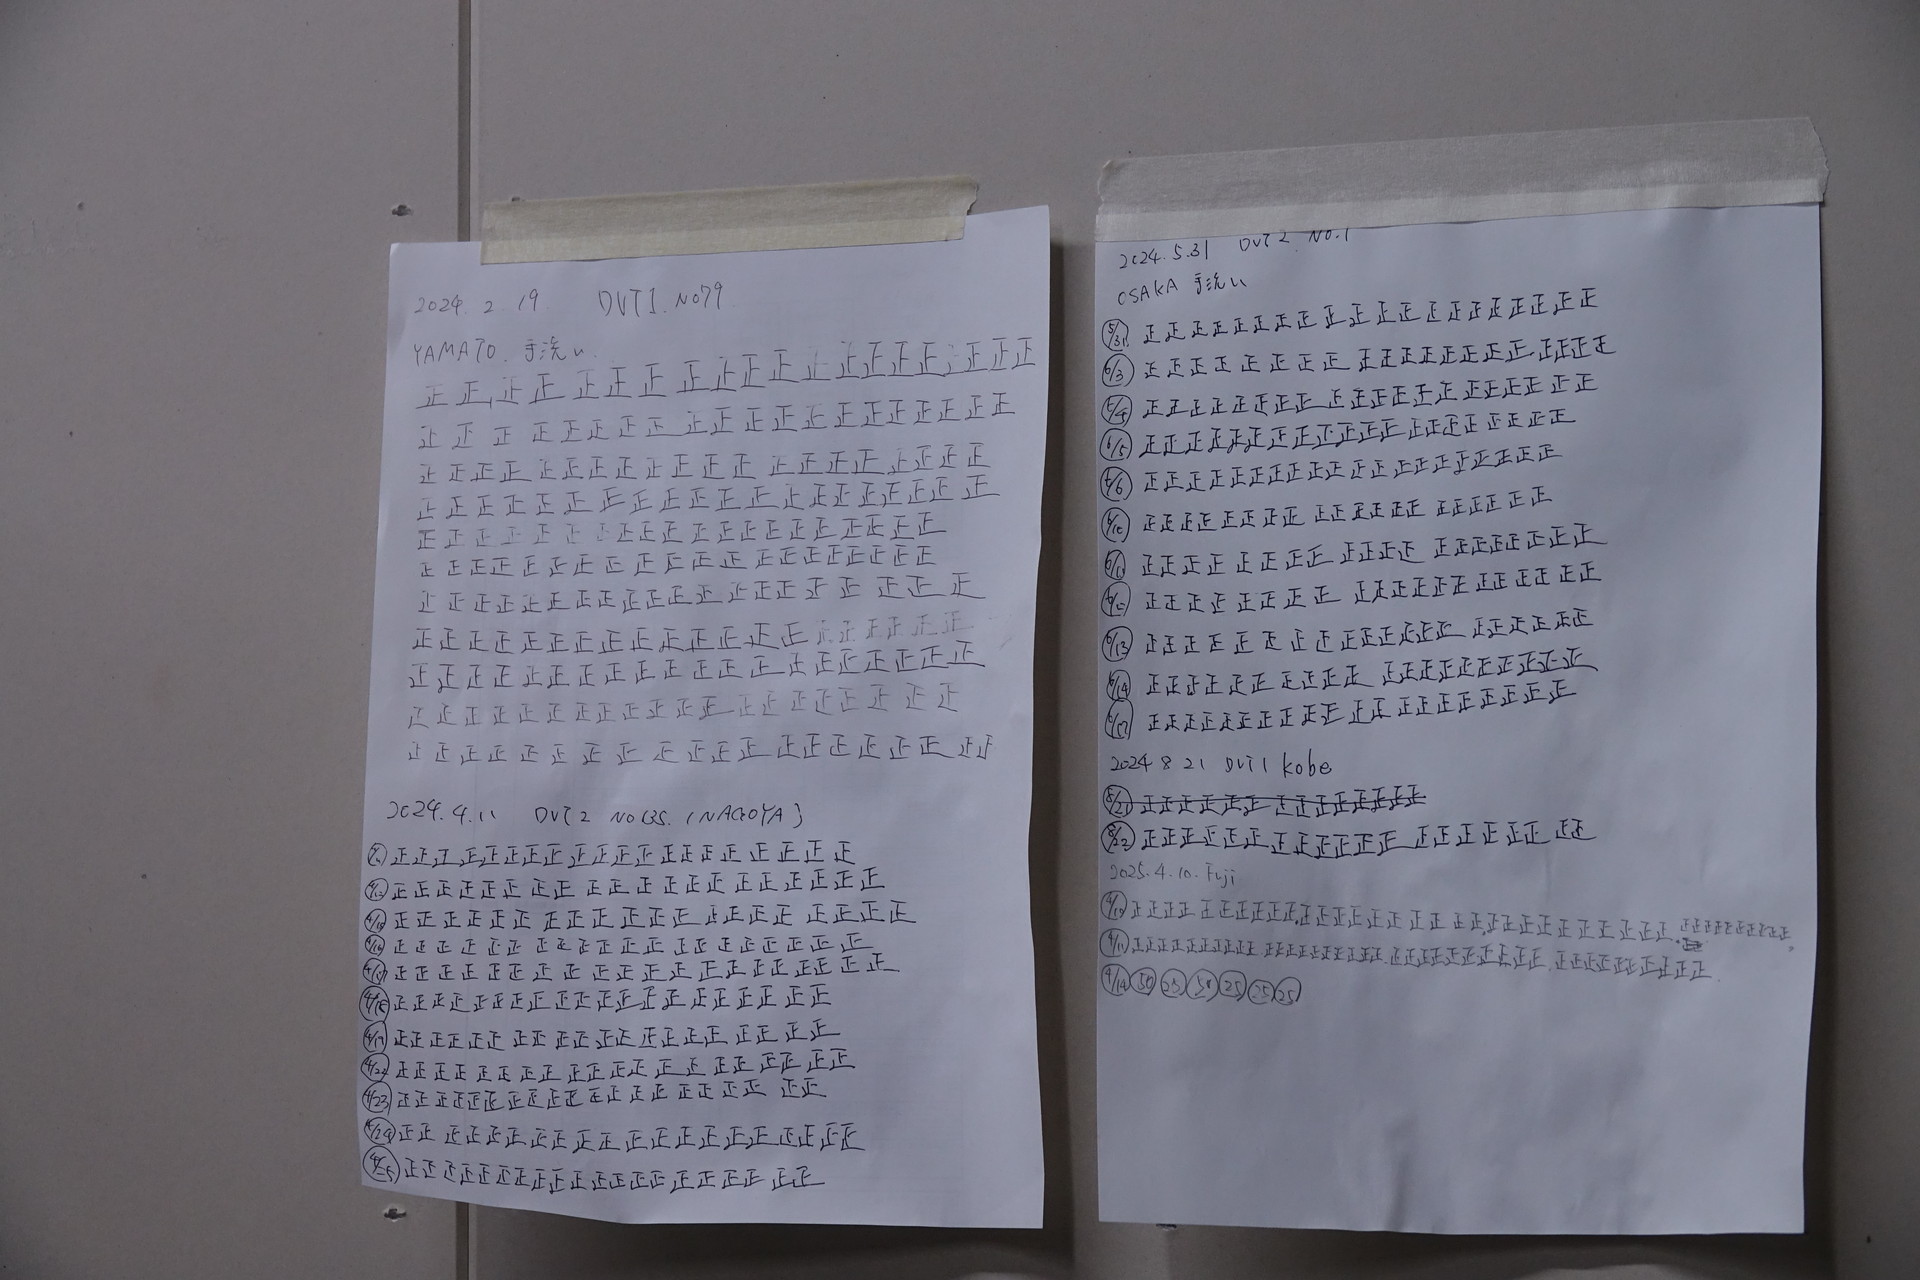 2024. 2. 19. DVT1. No79
YAMATO. 手洗い
正正正正正正正正正正正正正正正正正正正正
正正正正正正正正正正正正正正正正正正正正
正正正正正正正正正正正正正正正正正正正正
正正正正正正正正正正正正正正正正正正正正
正正正正正正正正正正正正正正正正正正正正
正正正正正正正正正正正正正正正正正正正正
正正正正正正正正正正正正正正正正正正正正
正正正正正正正正正正正正正正正正正正正正
正正正正正正正正正正正正正正正正正正正正
正正正正正正正正正正正正正正正正正正正正
正正正正正正正正正正正正正正正正正正正正
2024. 4. 11 DVT2 No135. (NAGOYA)
正正正正正正正正正正正正正正正正正正正正
4/12 正正正正正正正正正正正正正正正正正正正正
正正正正正正正正正正正正正正正正正正正正
4/16 正正正正正正正正正正正正正正正正正正正正
4/17 正正正正正正正正正正正正正正正正正正正正
4/18 正正正正正正正正正正正正正正正正正正正正
4/19 正正正正正正正正正正正正正正正正正正正正
4/22 正正正正正正正正正正正正正正正正正正正正
4/23 正正正正正正正正正正正正正正正正正正正正
4/24 正正正正正正正正正正正正正正正正正正正正
4/25 正正正正正正正正正正正正正正正正正正正正
2024. 5. 31 DVT2 No.1
OSAKA 手洗い
5/31 正正正正正正正正正正正正正正正正正正正正
6/3 正正正正正正正正正正正正正正正正正正正正
6/4 正正正正正正正正正正正正正正正正正正正正
6/5 正正正正正正正正正正正正正正正正正正正正
6/6 正正正正正正正正正正正正正正正正正正正正
6/10 正正正正正正正正正正正正正正正正正正正正
6/11 正正正正正正正正正正正正正正正正正正正正
6/12 正正正正正正正正正正正正正正正正正正正正
6/13 正正正正正正正正正正正正正正正正正正正正
6/14 正正正正正正正正正正正正正正正正正正正正
6/17 正正正正正正正正正正正正正正正正正正正正
2024 8 21 DVT1 kobe
8/21 正正正正正正正正正正正正正
8/22 正正正正正正正正正正正正正正正正正正正正
2025. 4. 10. Fuji
4/10 正正正正正正正正正正正正正正正正正正正正正正正正正正正正正正正正正正正正正正正正
4/11 正正正正正正正正正正正正正正正正正正正正正正正正正正正正正正正正正正正正正正正正
4/14 50 25 50 25 25 25